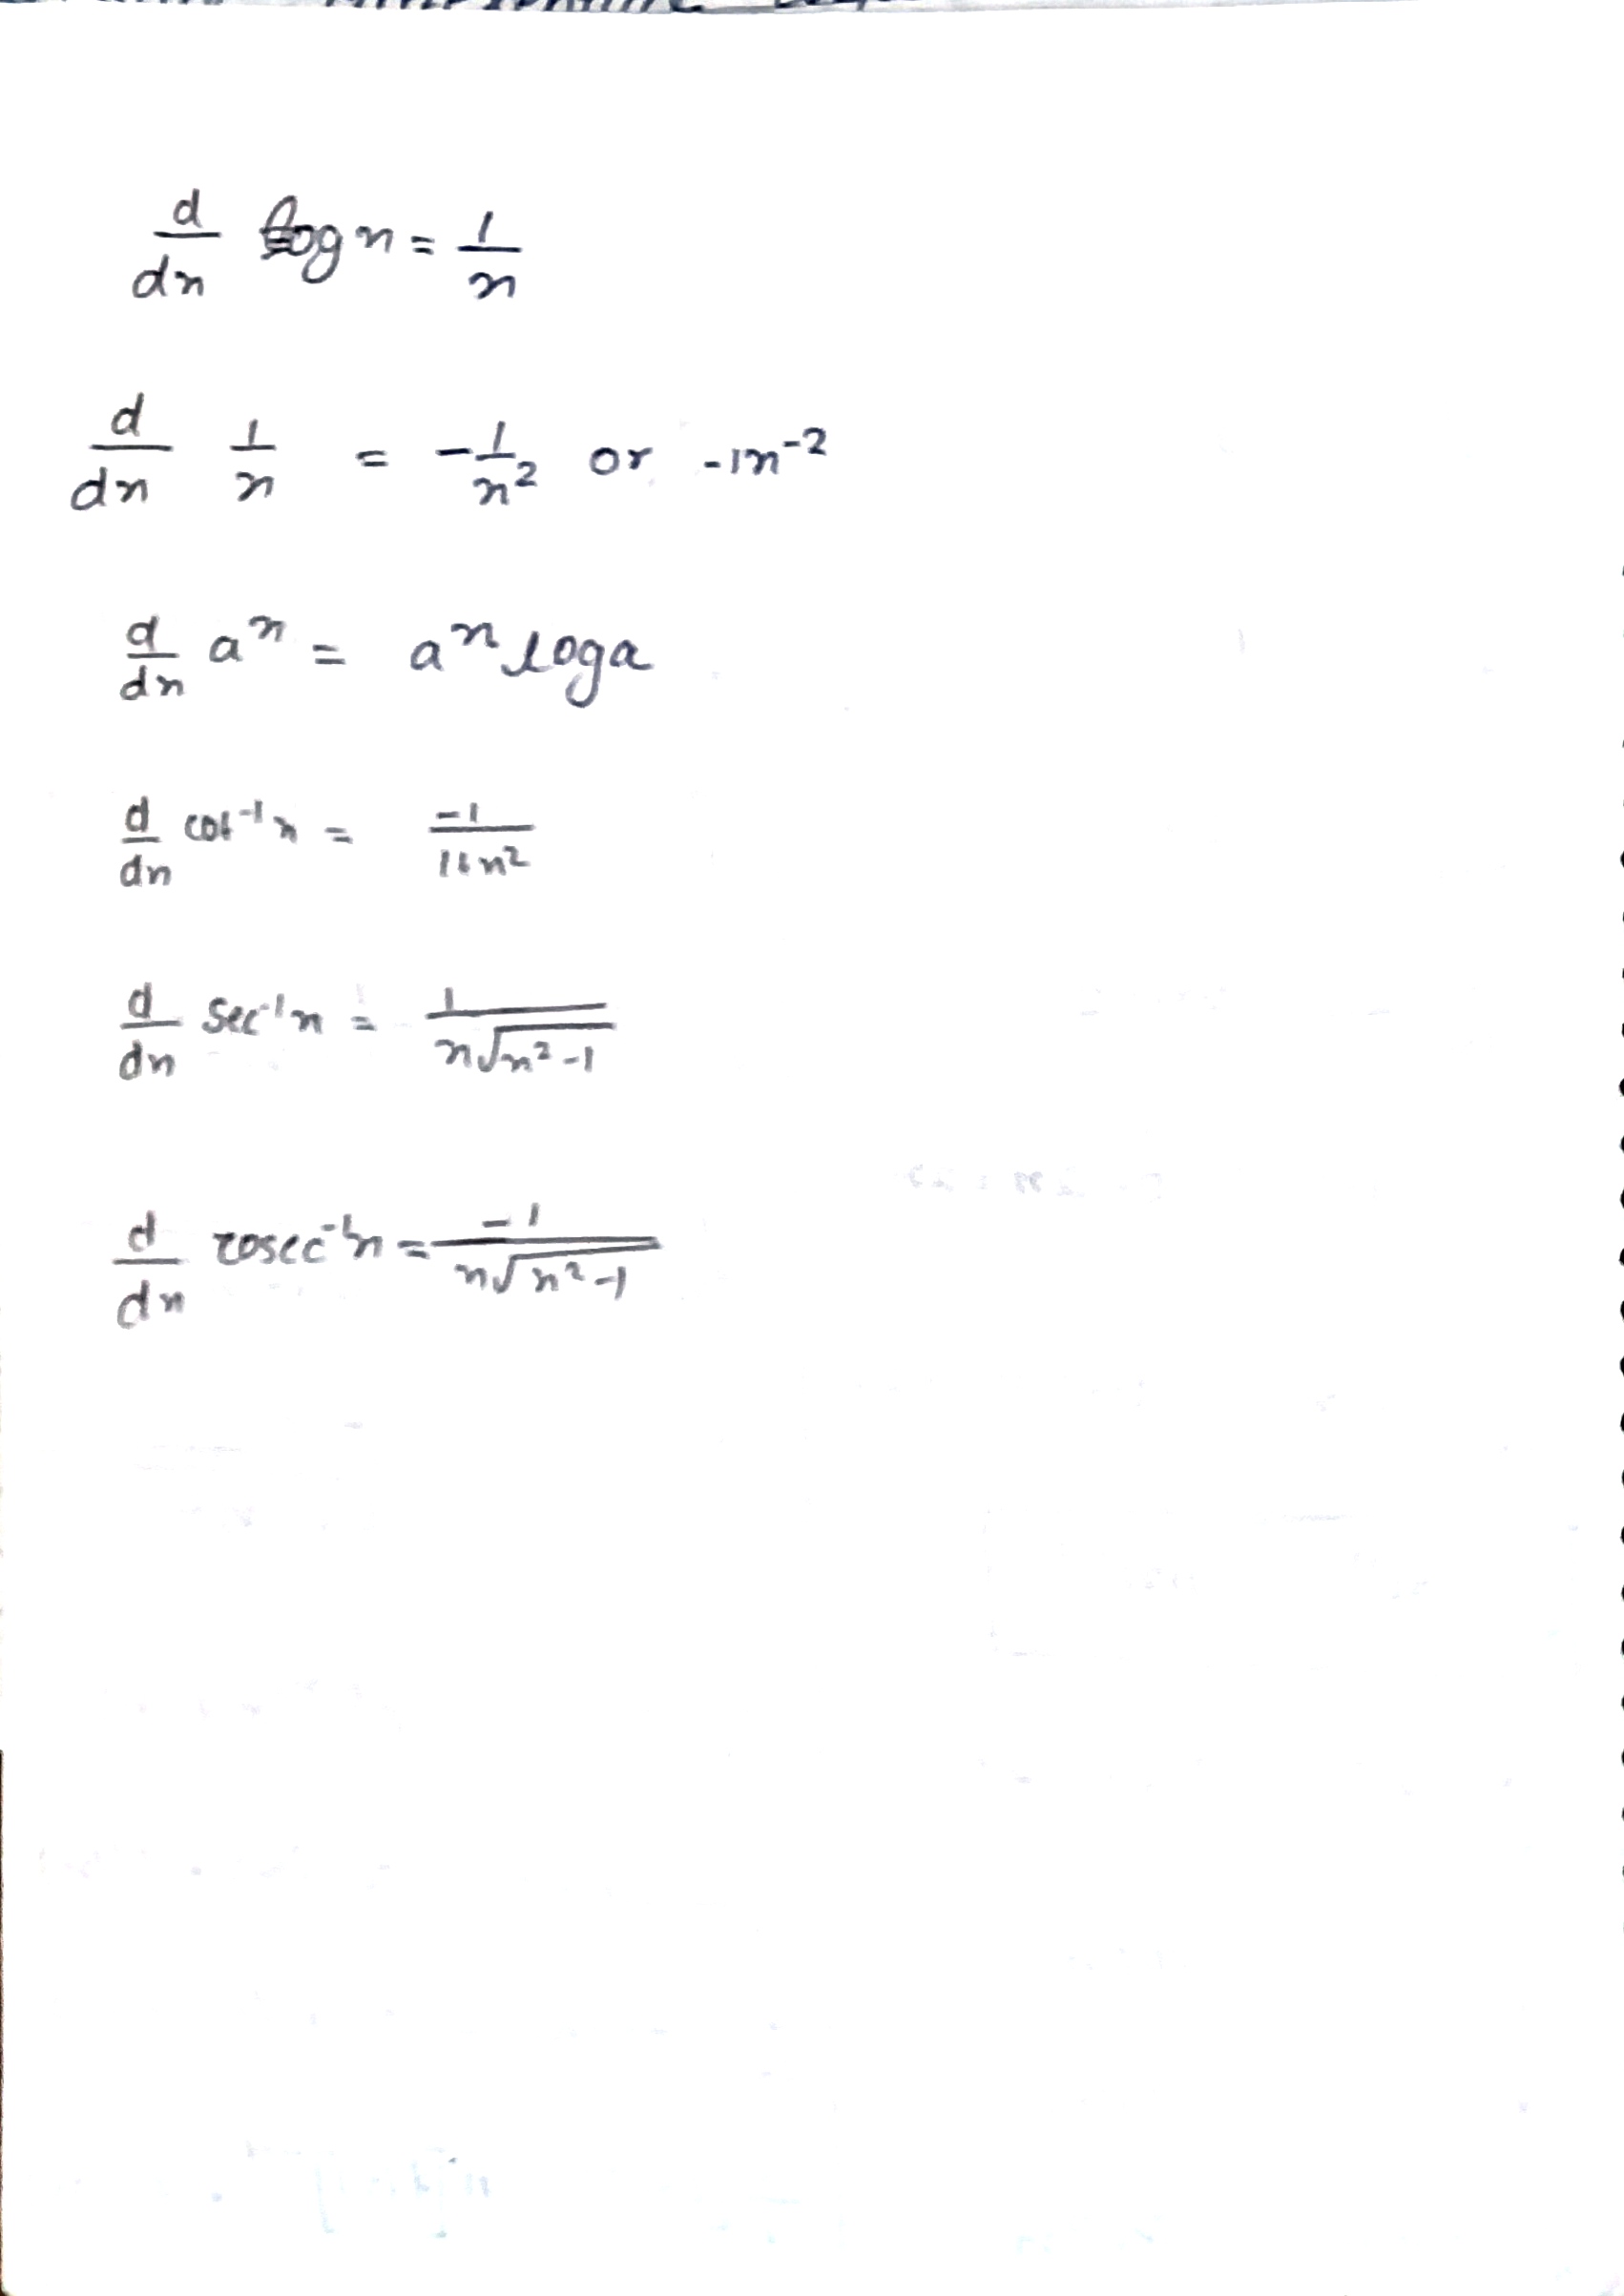 d/dx log x = 1/x
d/dx 1/x = -1/x² or -1x⁻²
d/dx aˣ = aˣ log a
d/dx cot⁻¹x = -1/1+x²
d/dx sec⁻¹x = 1/x√x²-1
d/dx cosec⁻¹x = -1/x√x²-1